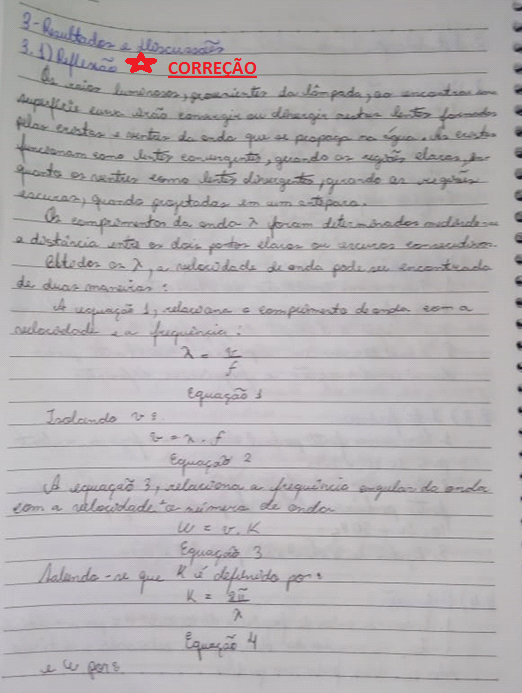 3 - Resultados e Discussões
3.1) Reflexão CORREÇÃO
Os raios luminosos, provenientes da lâmpada, ao encontrar uma
superfície curva irão convergir ou divergir nestas lentes formadas
pelas cristas e ventres da onda que se propaga na água. As cristas
funcionam como lentes convergentes, gerando as regiões claras, en-
quanto os ventres como lentes divergentes, gerando as regiões
escuras, quando projetadas em um anteparo.
Os comprimentos da onda λ foram determinados medindo-se
a distância entre os dois pontos claros ou escuros consecutivos.
Obtidos os λ, a velocidade de onda pode ser encontrada
de duas maneiras:
A equação 1, relaciona o comprimento de onda com a
velocidade e a frequência:
λ = v/f
Equação 1
Isolando v:
v = λ . f
Equação 2
A equação 3, relaciona a frequência angular da onda
com a velocidade e o número de onda
W = v. K
Equação 3
Sabendo-se que K é definido por:
K = 2π/λ
Equação 4
e W por: